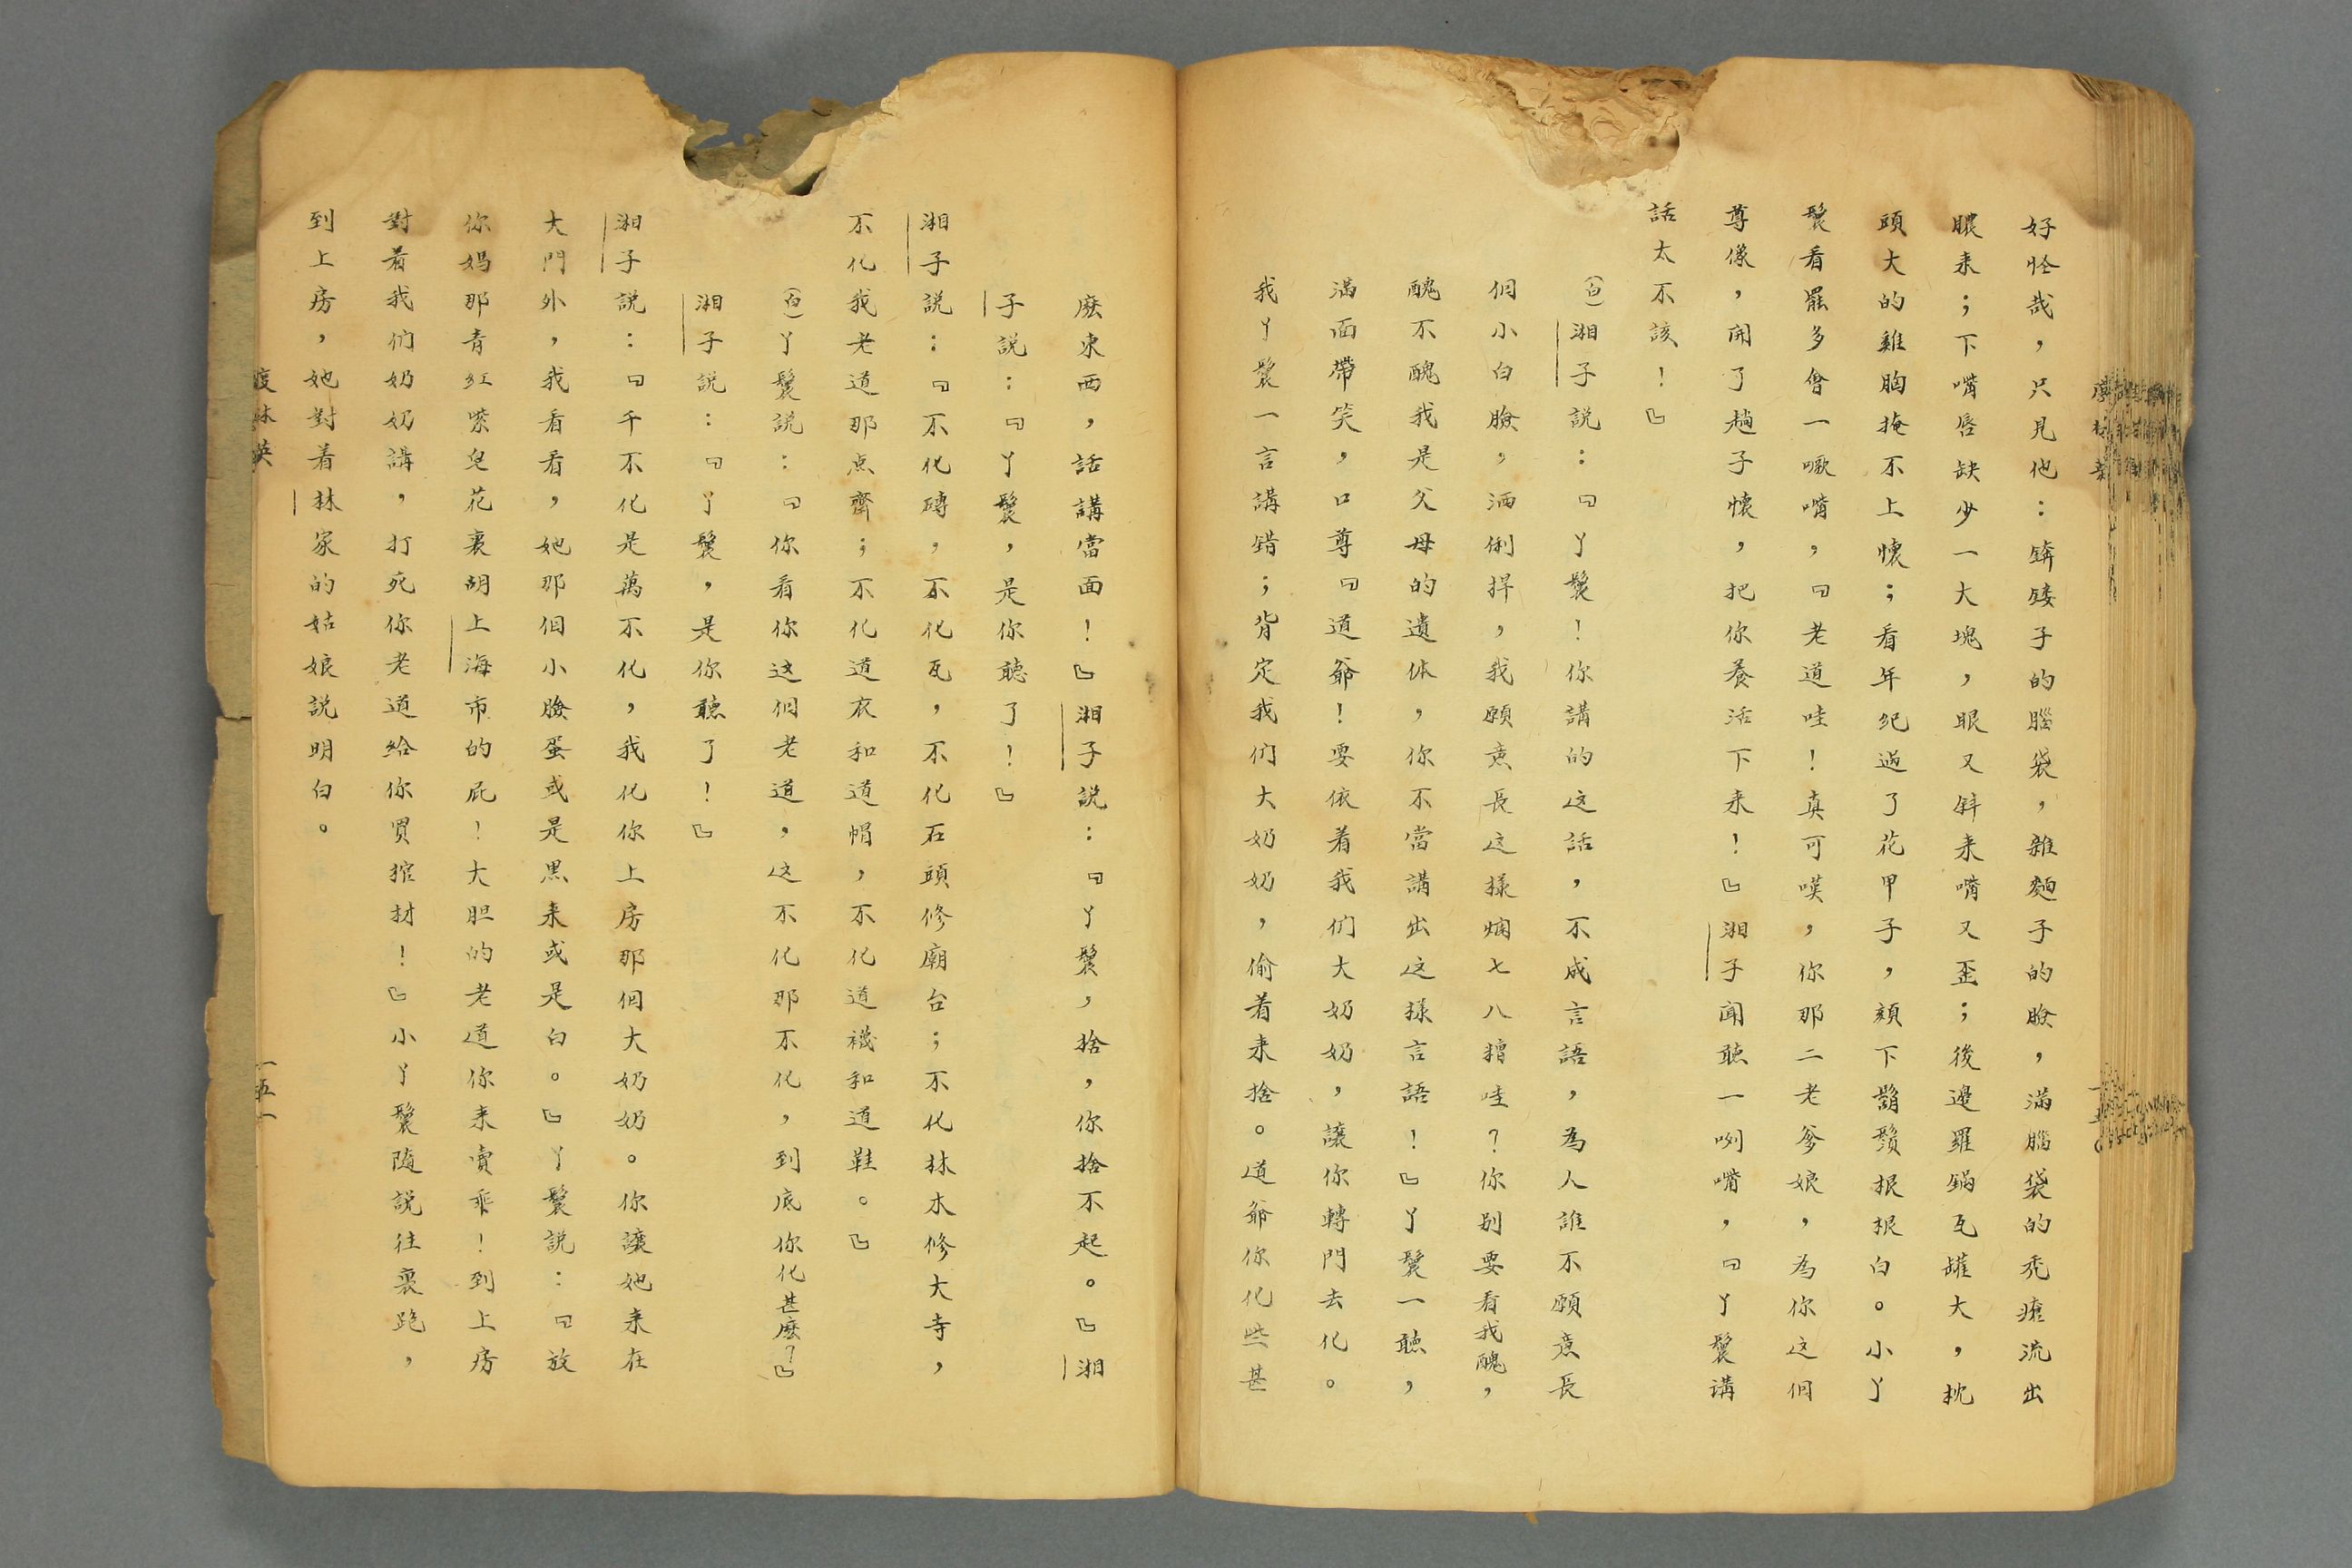 好怪哉，只見他：錛矮子的腦袋，雜麵子的臉，滿腦袋的禿瘡流出
膿来；下嘴唇缺少一大塊，眼又斜来嘴又歪；後邊羅鍋瓦罐大，枕
頭大的雞胸掩不上懷；看年紀過了花甲子，頦下鬍鬚根根白。小丫
鬟看罷多會一噘嘴，『老道哇！真可嘆，你那二老爹娘，為你这個
尊像，開了趟子懷，把你养活下来！』湘子聞聽一咧嘴，『丫鬟講
話太不該！』
（白）湘子説：『丫鬟！你講的这話，不成言語，為人誰不願意長
個小白臉，洒俐捍，我願意長这樣爛七八糟哇？你别要看我醜，
醜不醜我是父母的遺体，你不當講出这樣言語！』丫鬟一聽，
滿面帶笑，口尊『道爺！要依着我们大奶奶，讓你轉門去化。
我丫鬟一言講錯；背定我们大奶奶，偷着来捨。道爺你化些甚
麽東西，話講當面！』湘子説：『丫鬟，捨，你捨不起。』湘
子説：『丫鬟，是你聽了！』
湘子説：『不化磚，不化瓦，不化石頭修廟台；不化林木修大寺，
不化我老道那点齊；不化道衣和道帽，不化道襪和道鞋。』
（白）丫鬟説：『你看你这個老道，这不化那不化，到底你化甚麽？』
湘子説：『丫鬟，是你聽了！』
湘子説：『千不化是萬不化，我化你上房那個大奶奶。你讓她来在
大門外，我看看，她那個小臉蛋或是黑来或是白。』丫鬟説：『放
你媽那青紅紫皂花裏胡上海市的屁！大胆的老道你来賣乖！到上房
對着我们奶奶講，打死你老道給你買棺材！』小丫鬟隨説往裏跑，
到上房，她對着林家的姑娘説明白。
度林英
一五一